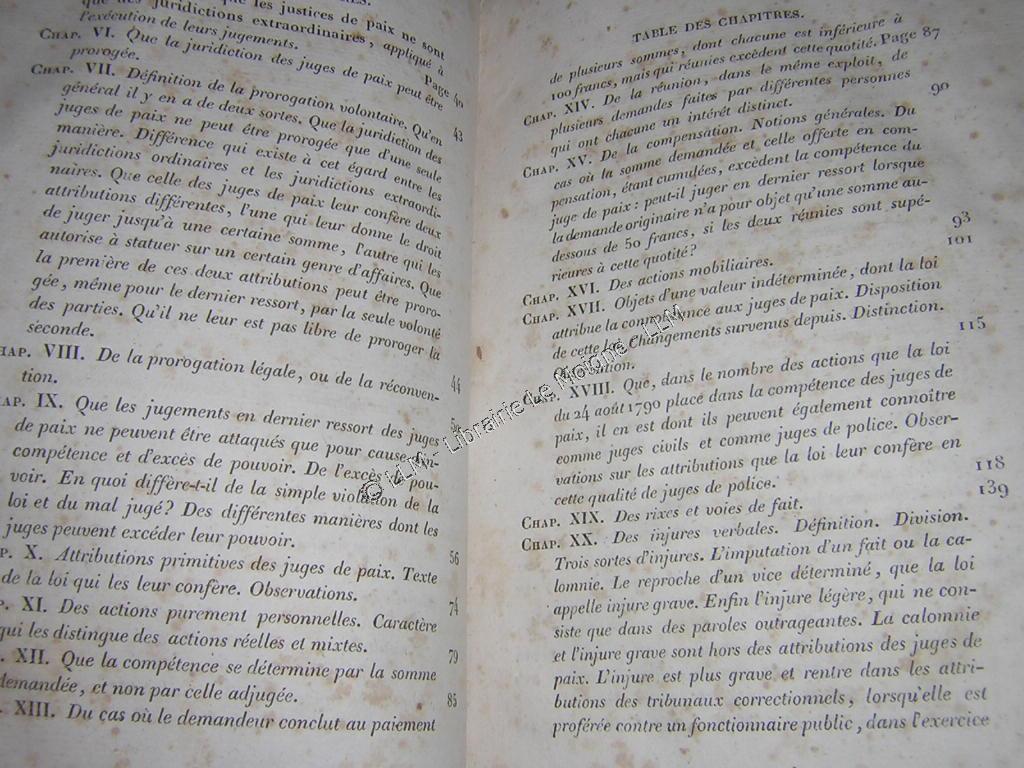 que les justices de paix ne sont
que des juridictions extraordinaires, appliqué à
l'exécution de leurs jugements. Page 40
Chap. VI. Que la juridiction des juges de paix peut être
prorogée. 43
Chap. VII. Définition de la prorogation volontaire. Qu'en
général il y en a de deux sortes. Que la juridiction des
juges de paix ne peut être prorogée que d'une seule
manière. Différence qui existe à cet égard entre les
juridictions ordinaires et les juridictions extraordi-
naires. Que celle des juges de paix leur confère deux
attributions différentes, l'une qui leur donne le droit
de juger jusqu'à une certaine somme, l'autre qui les
autorise à statuer sur un certain genre d'affaires. Que
la première de ces deux attributions peut être proro-
gée, même pour le dernier ressort, par la seule volonté
des parties. Qu'il ne leur est pas libre de proroger la
seconde. 44
hap. VIII. De la prorogation légale, ou de la réconven-
tion.
ap. IX. Que les jugements en dernier ressort des juges
de paix ne peuvent être attaqués que pour cause d'in-
compétence et d'excès de pouvoir. De l'excès de pou-
voir. En quoi diffère-t-il de la simple violation de la
loi et du mal jugé? Des différentes manières dont les
juges peuvent excéder leur pouvoir. 56
p. X. Attributions primitives des juges de paix. Texte
de la loi qui les leur confère. Observations. 74
p. XI. Des actions purement personnelles. Caractère
qui les distingue des actions réelles et mixtes. 79
. XII. Que la compétence se détermine par la somme
demandée, et non par celle adjugée. 85
. XIII. Du cas où le demandeur conclut au paiement
TABLE DES CHAPITRES.
de plusieurs sommes, dont chacune est inférieure à
100 francs, mais qui réunies excèdent cette quotité. Page 87
Chap. XIV. De la réunion, dans le même exploit, de
plusieurs demandes faites par différentes personnes
qui ont chacune un intérêt distinct. 90
Chap. XV. De la compensation. Notions générales. Du
cas où la somme demandée et celle offerte en com-
pensation, étant cumulées, excèdent la compétence du
juge de paix: peut-il juger en dernier ressort lorsque
la demande originaire n'a pour objet qu'une somme au-
dessous de 50 francs, si les deux réunies sont supé-
rieures à cette quotité? 93
Chap. XVI. Des actions mobiliaires. 101
Chap. XVII. Objets d'une valeur indéterminée, dont la loi
attribue la connaissance aux juges de paix. Disposition
de cette loi. Changements survenus depuis. Distinction.
Observation. 115
Chap. XVIII. Que, dans le nombre des actions que la loi
du 24 août 1790 place dans la compétence des juges de
paix, il en est dont ils peuvent également connoître
comme juges civils et comme juges de police. Obser-
vations sur les attributions que la loi leur confère en
cette qualité de juges de police. 118
Chap. XIX. Des rixes et voies de fait. 139
Chap. XX. Des injures verbales. Définition. Division.
Trois sortes d'injures. L'imputation d'un fait ou la ca-
lomnie. Le reproche d'un vice déterminé, que la loi
appelle injure grave. Enfin l'injure légère, qui ne con-
siste que dans des paroles outrageantes. La calomnie
et l'injure grave sont hors des attributions des juges de
paix. L'injure est plus grave et rentre dans les attri-
butions des tribunaux correctionnels, lorsqu'elle est
proférée contre un fonctionnaire public, dans l'exercice
© LLM - Librairie Le Moine - LLM